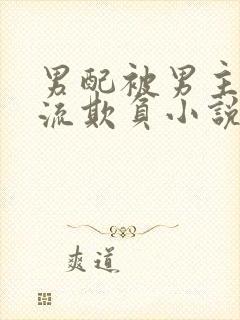 男配被男主
流欺負小說
爽道